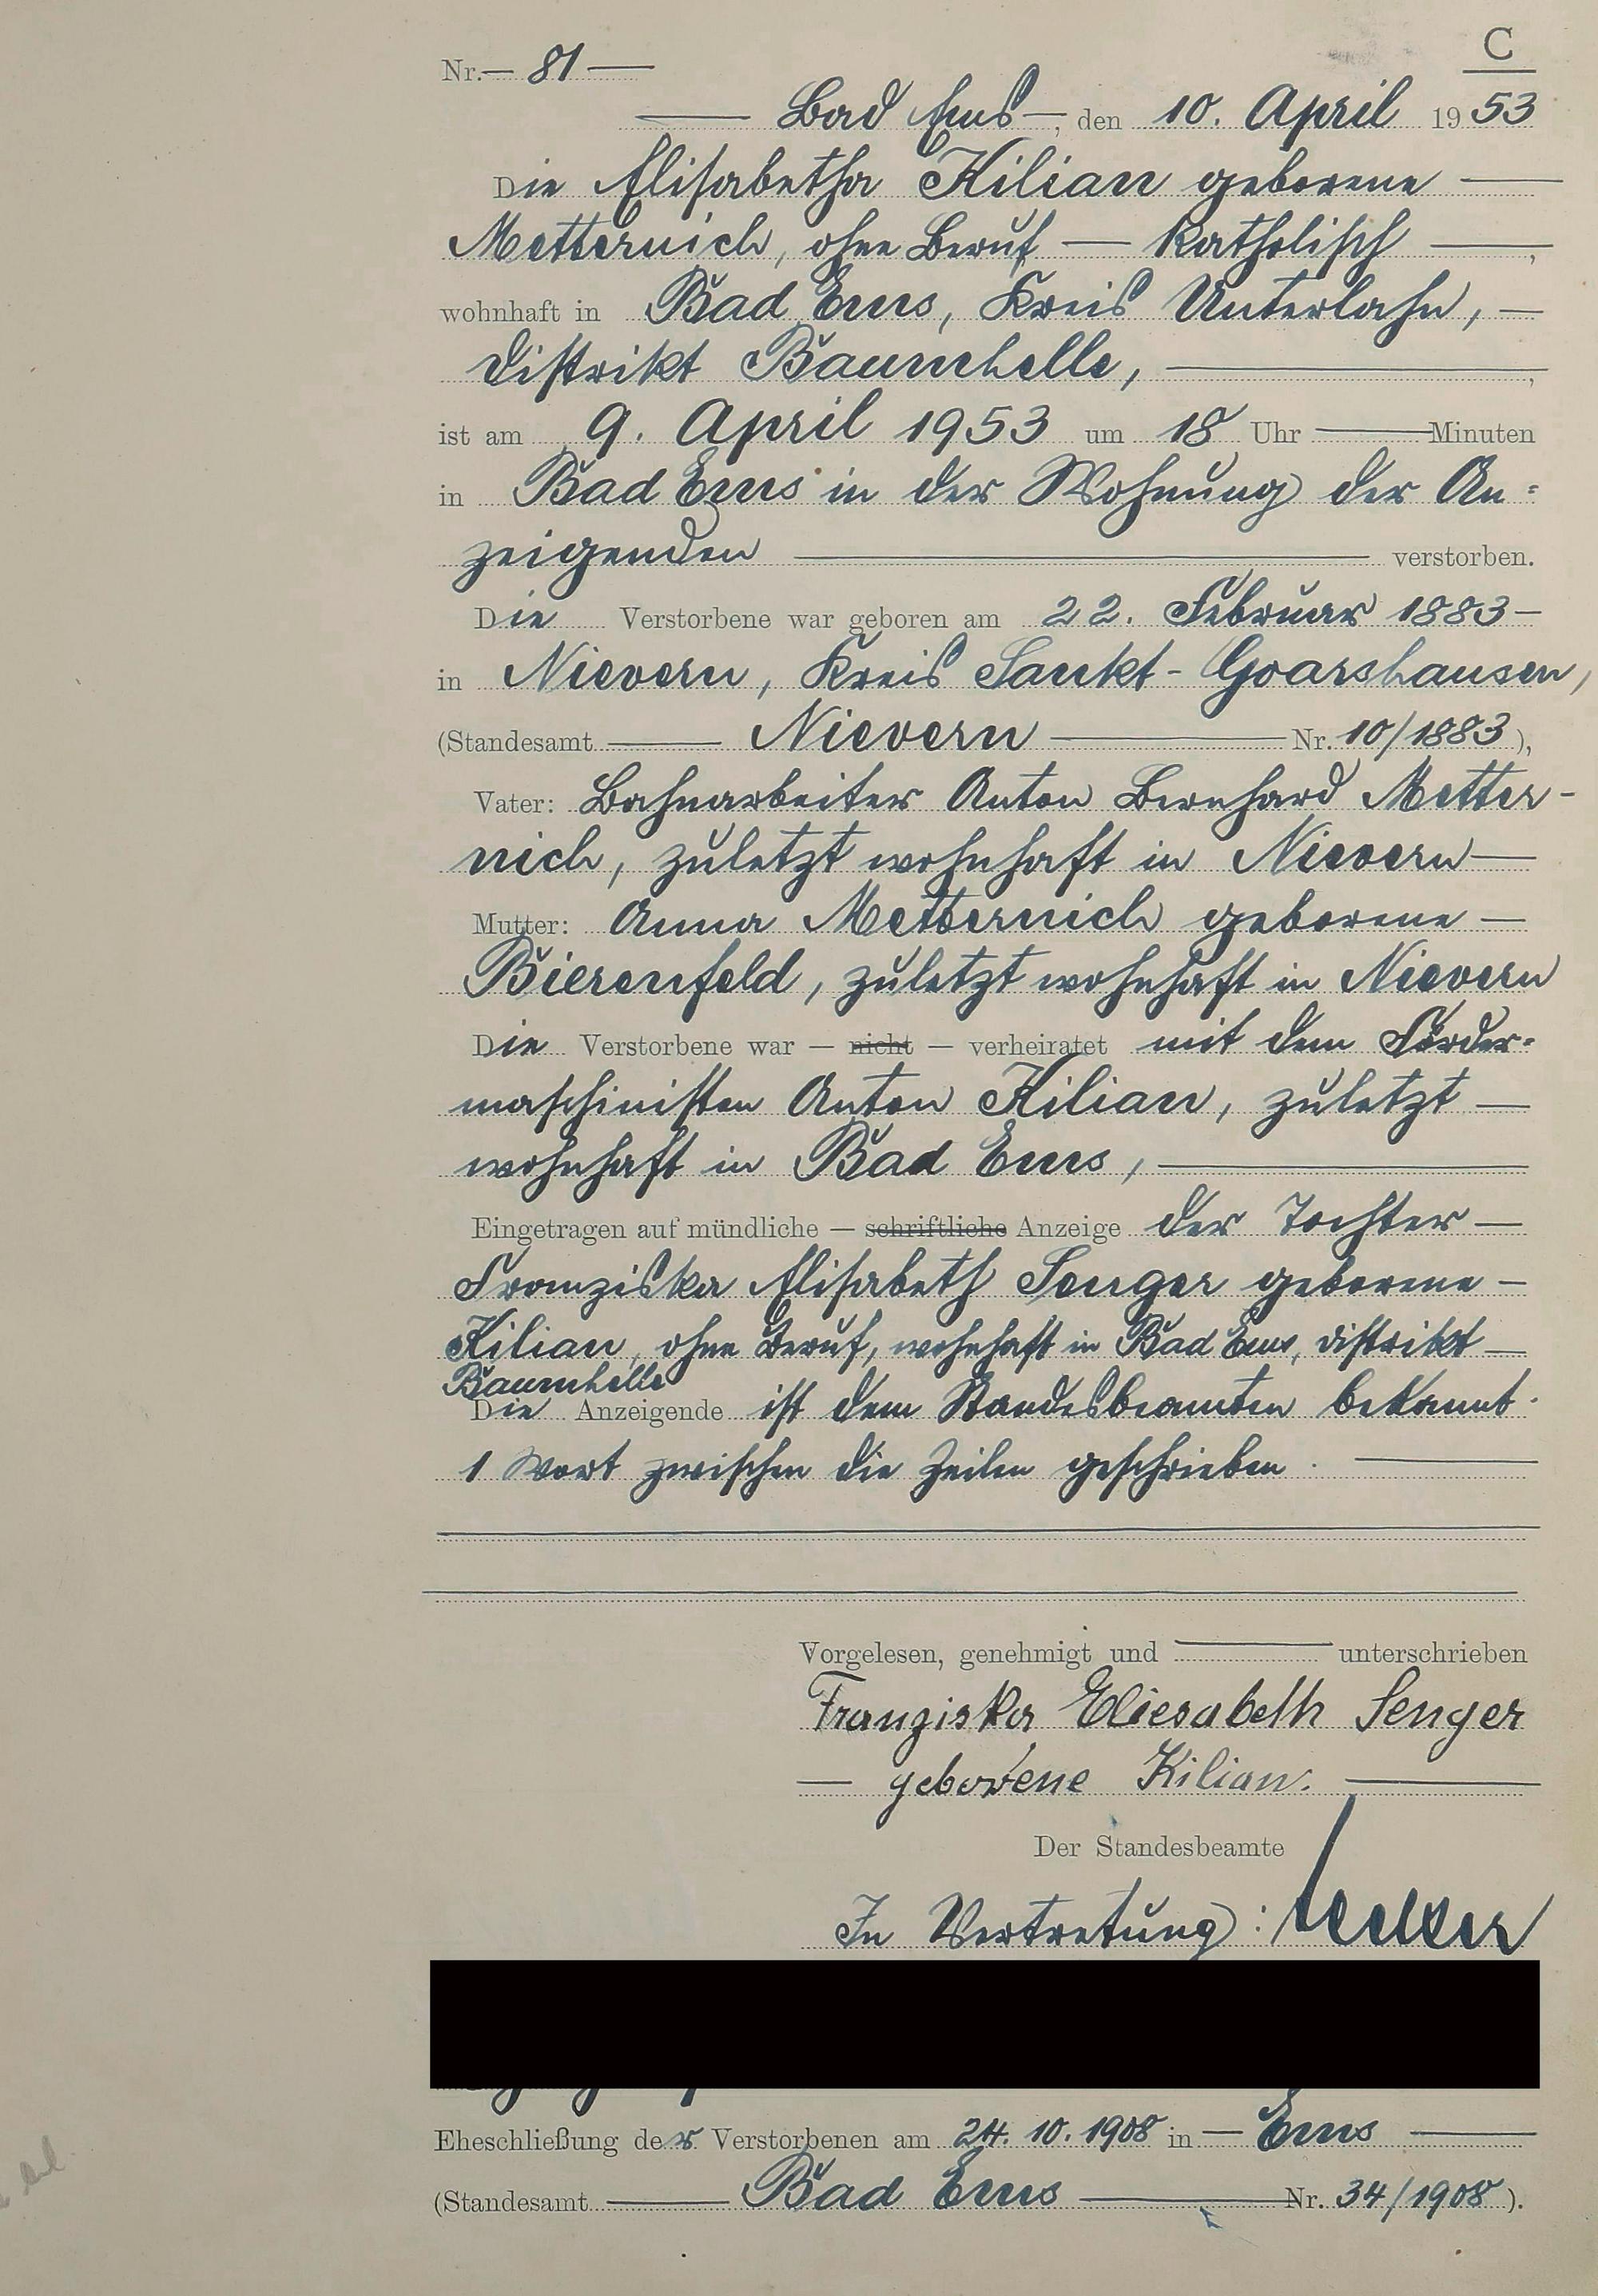 C
Nr. 81
Bad Ems, den 10. April 1953
Die Elisabetha Kilian geborene
Metternich, ohne Beruf — katholisch,
wohnhaft in Bad Ems, Kreis Unterlahn,
Distrikt Baumhelle,
ist am 9. April 1953 um 18 Uhr — Minuten
in Bad Ems in der Wohnung der An=
zeigenden verstorben.
Die Verstorbene war geboren am 22. Februar 1883
in Nievern, Kreis Sankt-Goarshausen,
(Standesamt Nievern Nr. 10/1883),
Vater: Bahnarbeiter Anton Bernhard Metter-
nich, zuletzt wohnhaft in Nievern
Mutter: Anna Metternich geborene
Bierenfeld, zuletzt wohnhaft in Nievern
Die Verstorbene war — nicht — verheiratet mit dem Förder=
maschinisten Anton Kilian, zuletzt
wohnhaft in Bad Ems,
Eingetragen auf mündliche — schriftliche Anzeige der Tochter
Franziska Elisabeth Senger geborene
Kilian, ohne Beruf, wohnhaft in Bad Ems, Distrikt
Baumhelle
Die Anzeigende ist dem Standesbeamten bekannt.
1 Wort zwischen die Zeilen geschrieben.
Vorgelesen, genehmigt und unterschrieben
Franziska Eliesabeth Senger
geborene Kilian.
Der Standesbeamte
In Vertretung:
Eheschließung der Verstorbenen am 24. 10. 1908 in Ems
(Standesamt Bad Ems Nr. 34/1908).